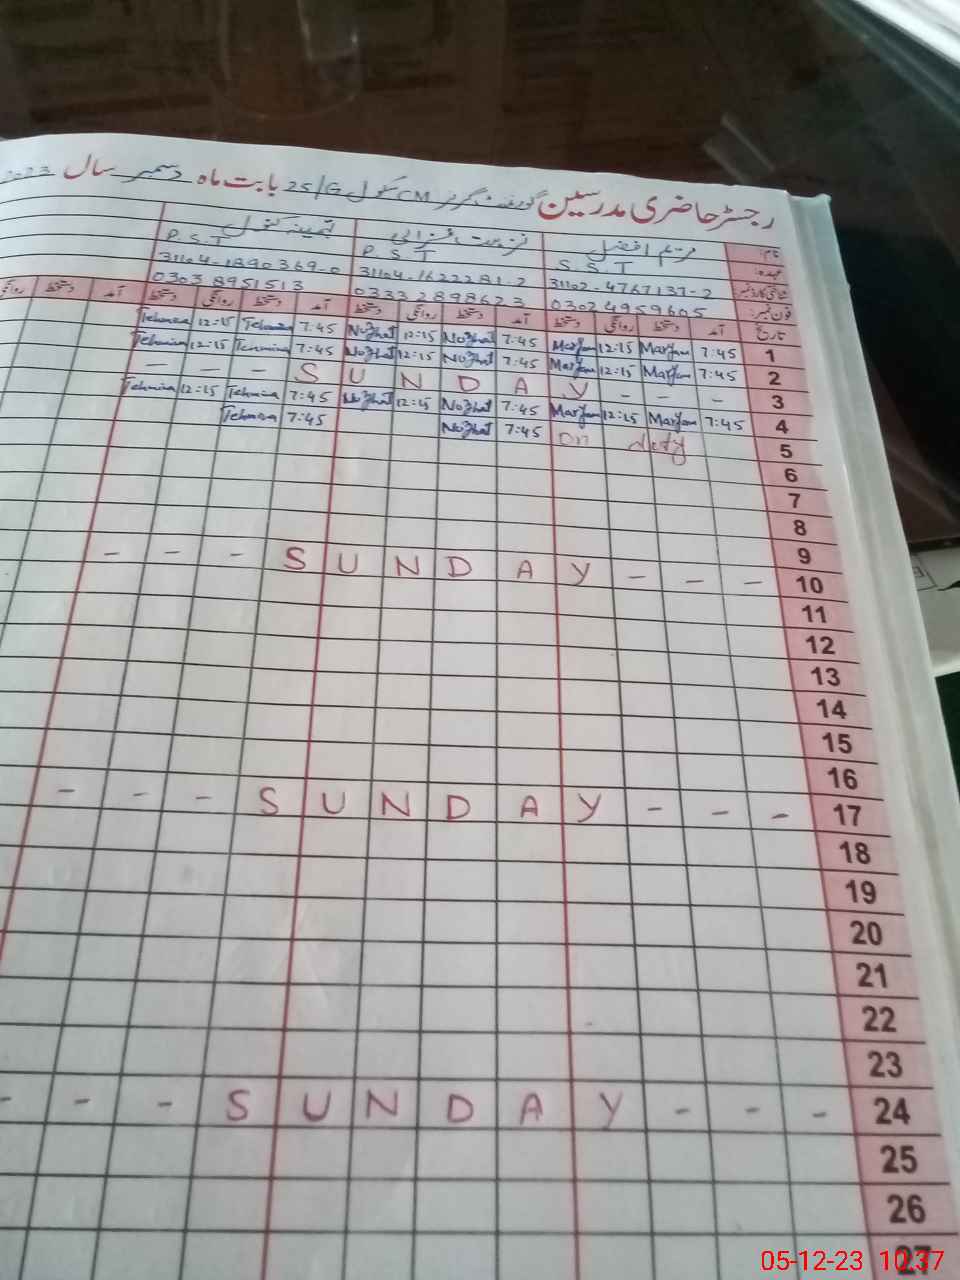 رجسٹر حاضری مدرسین گورنمنٹ گرلز CM سکول 25/G بابت ماہ دسمبر سال 2023
نام: مریم افضل تہمینہ کنول
عہدہ: S.S.T P.S.T P.S.T
شناختی کارڈ نمبر 31102-4767137-2 31104-1622281-2 31104-1890369-0
فون نمبر: 0302 4959605 0333 2898623 0303 8951513
تاریخ آمد دستخط روانگی دستخط آمد دستخط روانگی دستخط آمد دستخط روانگی دستخط آمد دستخط روانگی
1 7:45 Maryam 12:15 Maryam 7:45 Nozhat 12:15 Nozhat 7:45 Tehmina 12:15 Tehmina
2 7:45 Maryam 12:15 Maryam 7:45 Nozhat 12:15 Nozhat 7:45 Tehmina 12:15 Tehmina
- - - S U N D A Y - - - 3
4 7:45 Maryam 12:15 Maryam 7:45 Nozhat 12:15 Nozhat 7:45 Tehmina 12:15 Tehmina
5 On duty 7:45 Nozhat 7:45 Tehmina
6
7
8
9
- - - S U N D A Y - - - 10
11
12
13
14
15
16
- - - S U N D A Y - - - 17
18
19
20
21
22
23
- - - S U N D A Y - - - 24
25
26
27
05-12-23 10:37